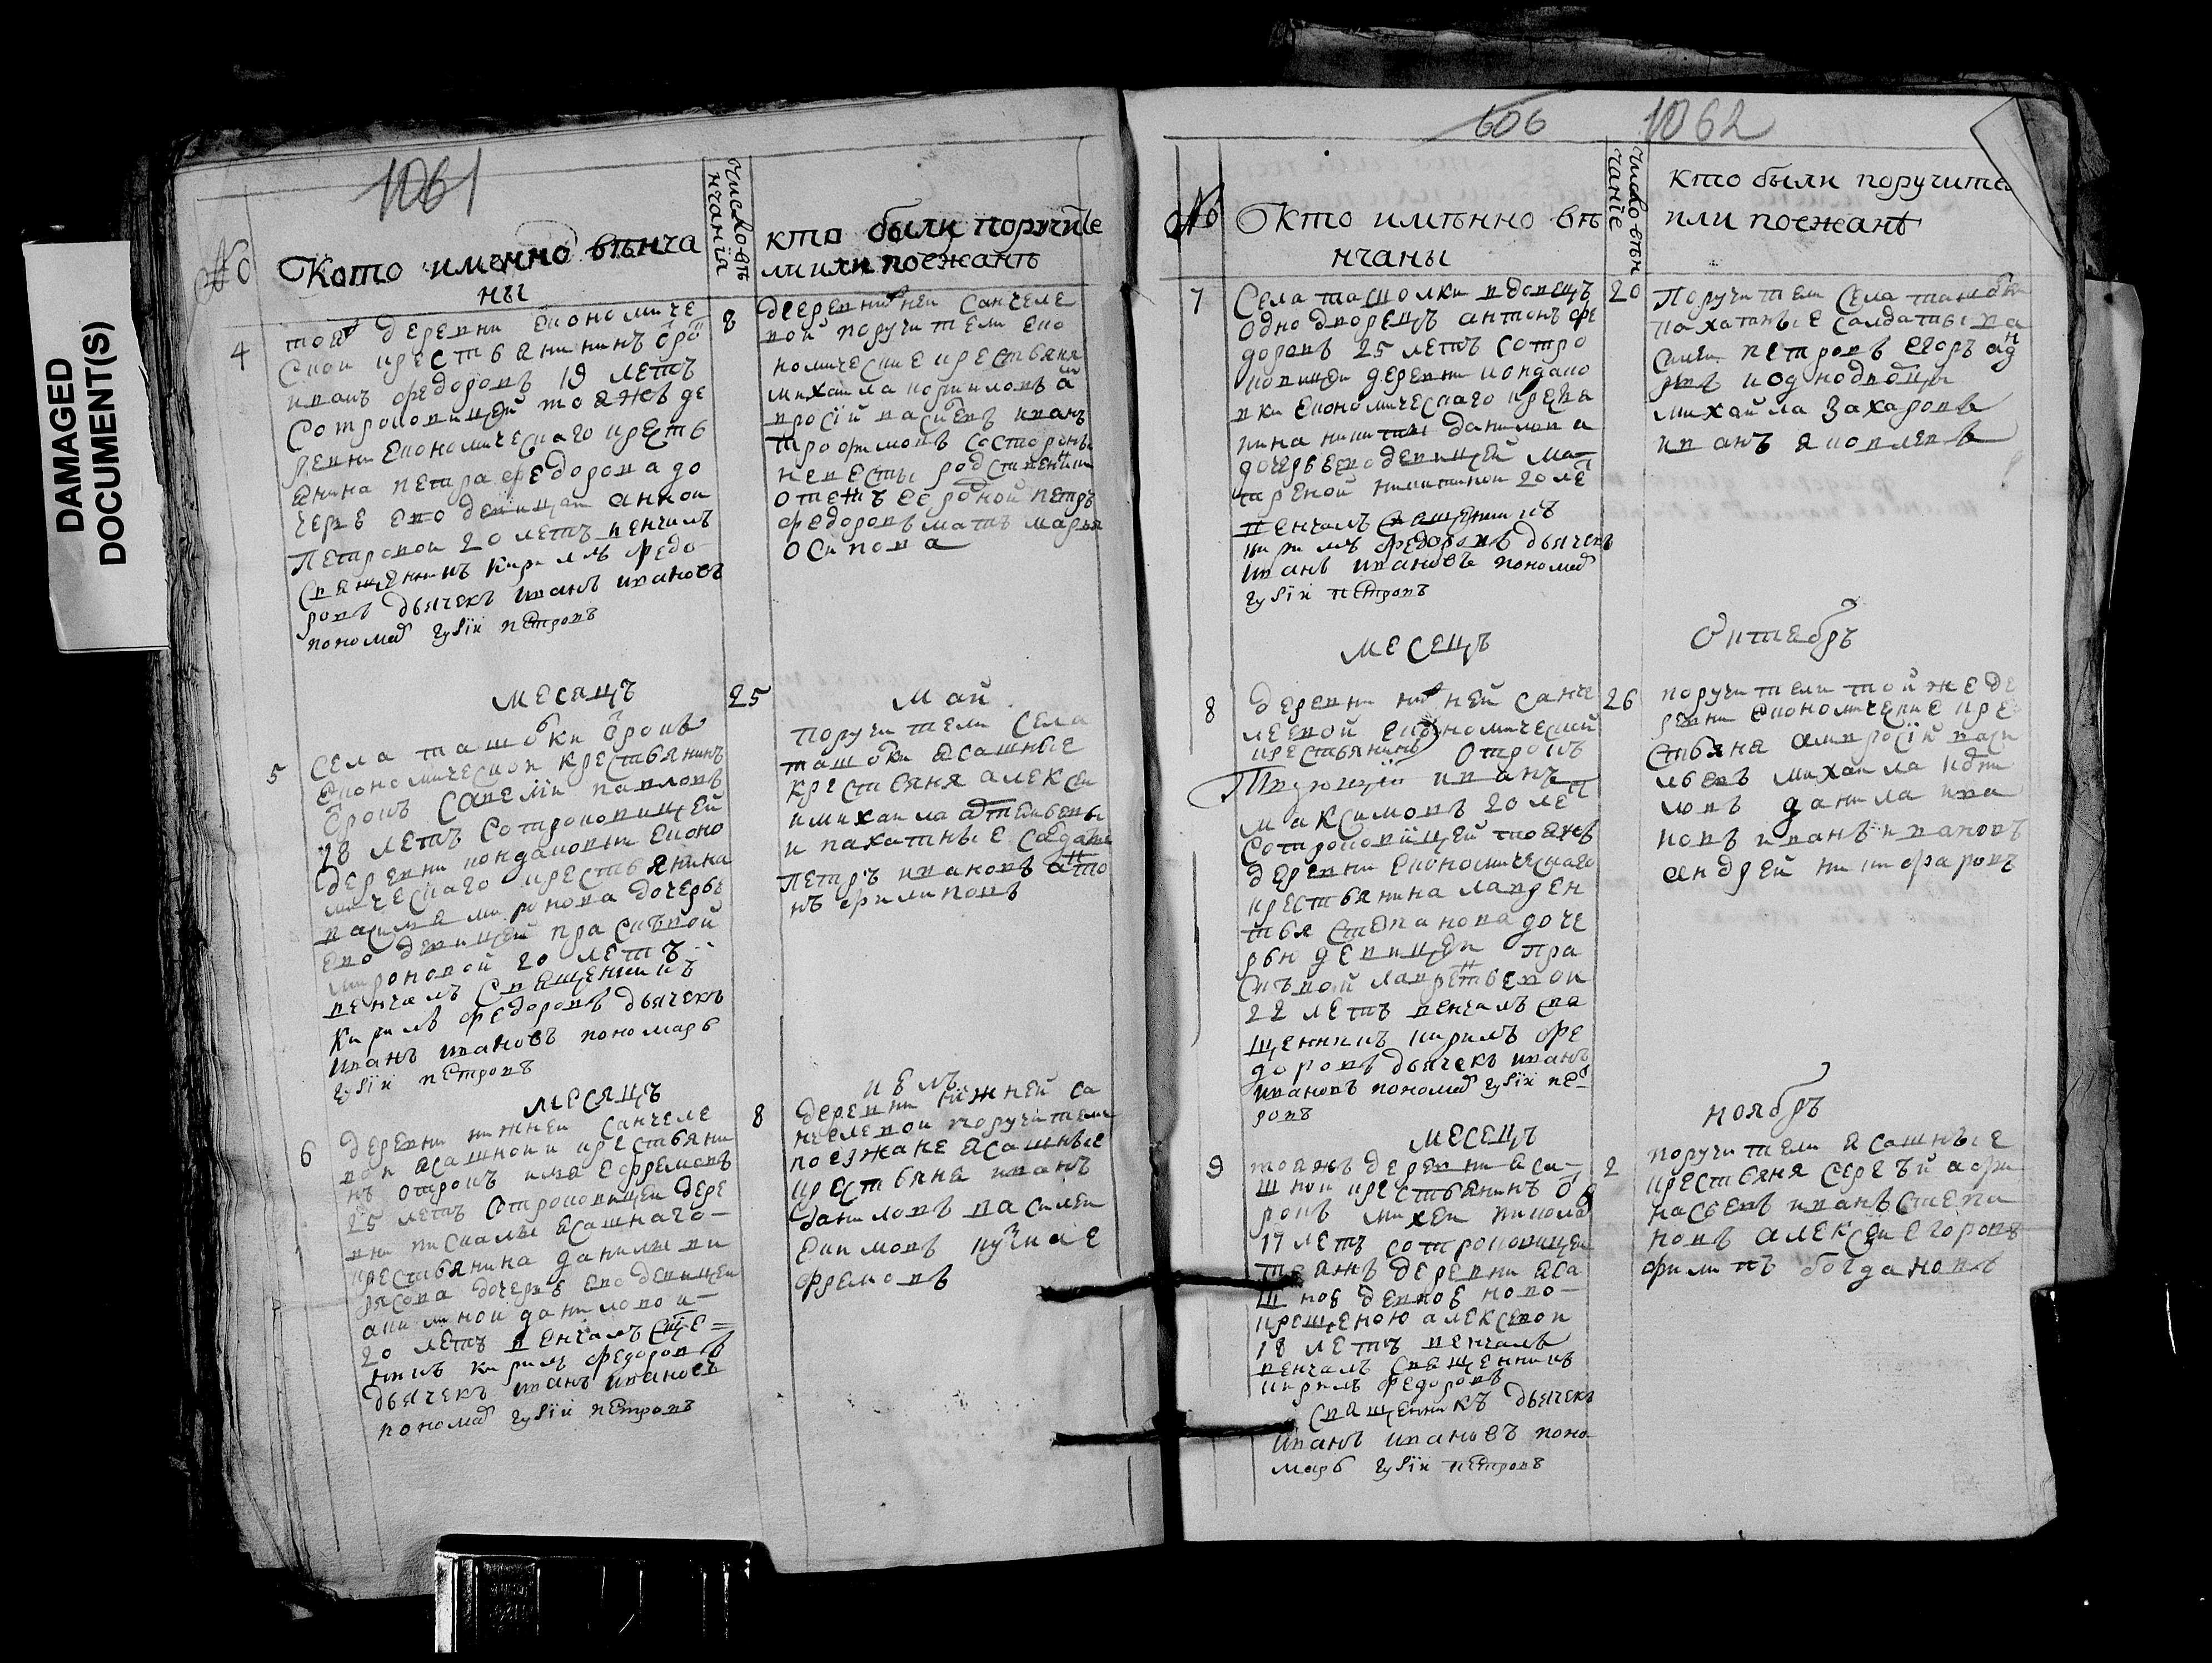 DAMAGED
DOCUMENT(S)
1061
№
Кото именно вѣнча
ны
число вѣ
нчанія
кто были поручите
ли или поежанѣ
4
тоя деревни економиче
ской крестьянинъ отро
иванъ федоровъ 19 летъ
сотроковицей тояжъ де
ревни економическаго кресть
янина петра федорова до
черь ево девицай анной
Петровой 20 летъ венчалъ
священникъ Кирилъ федо
ровъ дьячекъ иванъ ивановъ
пономар гурiй петровъ
8
деревни нижней санчеле
вой поручители еко
номические крестьяня
михаила корниловъ ан
иванъ
трофимовъ состороны
невесты родственники
отецъ ее родной петръ
федоровъ мать марья
осипова
месяцъ
25
май
5
села ташолки отрокъ
економической крестьянинъ
отрокъ савелiй павловъ
28 летъ сотроковицей
деревни кондаковки еконо
мическаго крестьянина
миронова дочерье
ево девицей прасковьей
мироновой 20 летъ
венчалъ священникъ
Кирилъ федоровъ дьячекъ
иванъ ивановъ пономарь
гурiй петровъ
поручители села
ташолки ясашные
крестьяня алексей
и михаила
и пахатные салдаты
петръ ивановъ анто
нъ филиповъ
месяцъ
июль
6
деревни нижней санчеле
вой ясашной крестьяни
нъ отрокъ ефремовъ
25 летъ сотроковицей дере
вни писмалы ясашнаго
крестьянина данилы ки
рясова дочерь ево девицей
акилиной даниловой
20 летъ венчалъ свяще
нникъ кирилъ федоровъ
дьячекъ иванъ ивановъ
пономар гурiй петровъ
8
деревни нижней са
нчелевой поручители
поезжане ясашные
крестьяна иванъ
даниловъ василей
екимовъ е
фремовъ
606 1062
№
Ꙩкто имѣнно вѣ
нчаны
число вѣн
чаніе
кто были поручите
или поежанѣ
7
Села ташолки вдовецъ
однодворецъ антонъ фе
доровъ 25 летъ сотро
ковицей деревни кондако
вки економическаго кресья
нина никиты данилова
дочерьеводевицей ма
треной никитиной 20 ле
венчалъ священникъ
кирилъ федоровъ дьячекъ
иванъ ивановъ пономар
гурiй петровъ
20
Поручители села ташолки
пахатные салдаты ва
силей петровъ егоръ
и однодворцы
михайла захаровъ
иванъ яковлевъ
месецъ
октябръ
8
деревни нижней санче
левой економической
крестьянинъ отрокъ
иванъ
максимовъ 20 лет
сотроковицей тояжъ
деревни економическаго
крестьянина лаврен
тья степанова доче
рью девицей пра
сковьй лаврентьевой
22 летъ венчалъ свя
щенникъ кирилъ фе
доровъ дьячекъ иванъ
ивановъ пономар гурiй пет
ровъ
26
поручители той же де
ревни економические кре
стьяня амвросiй васи
льевъ михаила корни
ловъ данила ива
новъ иванъ ивановъ
андрей никифоровъ
месецъ
ноябръ
9
тояжъ деревни яса
шной крестьянинъ от
рокъ михей никола
17 летъ сотроковицей
тояжъ деревни яса
шной девкой ново
крещеною алексевой
18 летъ венчалъ
венчалъ священникъ
кирилъ федоровъ
священникъ дьячекъ
иванъ ивановъ поно
марь гурiй петровъ
2
поручители ясашные
крестьяня сергѣй афо
насьевъ иванъ степа
новъ алексей егоровъ
филипъ богдановъ